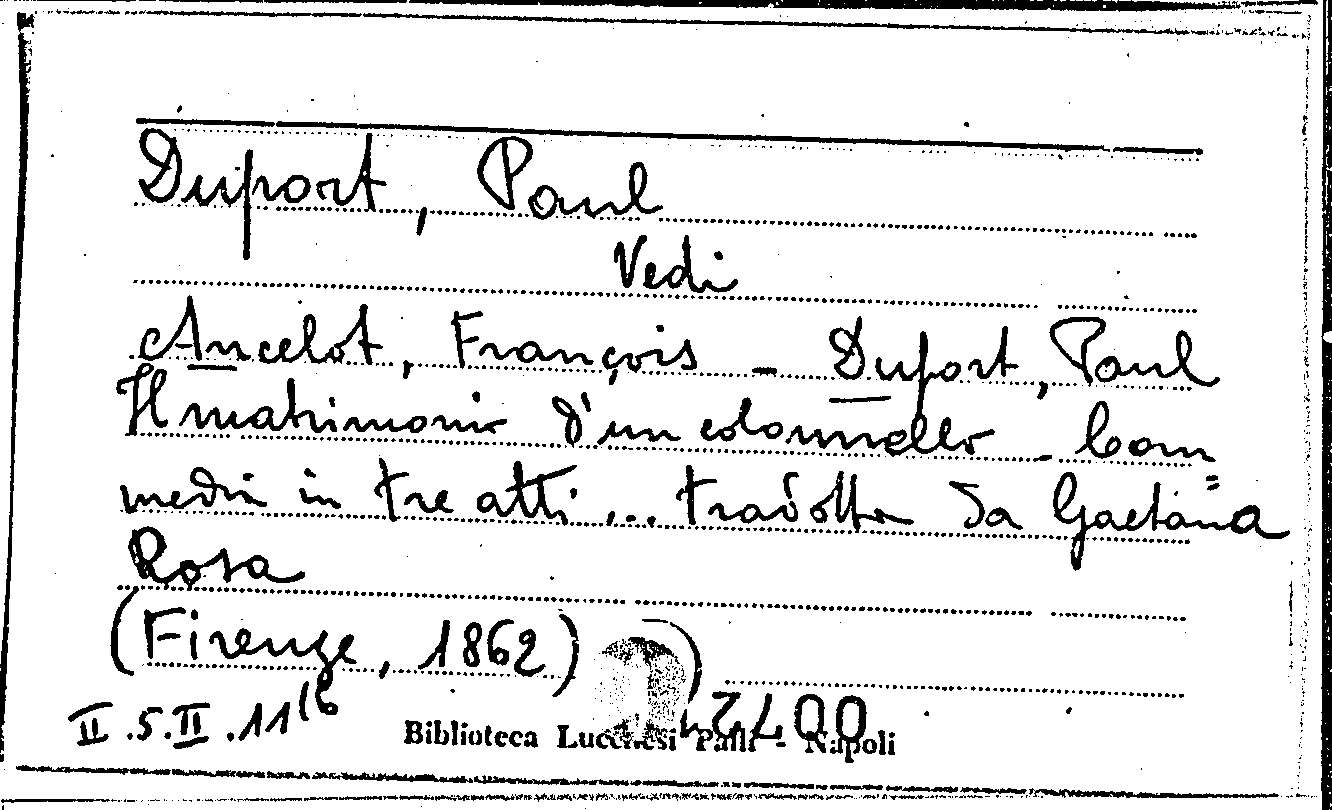 Duport, Paul
Vedi
Ancelot, François - Duport, Paul
Il matrimonio d'un colonnello - Com=
media in tre atti ... tradotta da Gaetana
Rosa
(Firenze, 1862)
II.5.II.11(6
Biblioteca Lucchesi Palli - Napoli